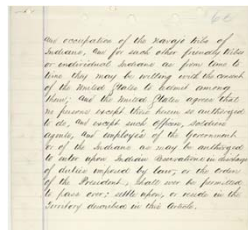 and occupation of the Navajo tribe of
Indians, and for such other friendly tribes
or individual Indians as from time to
time they may be willing, with the consent
of the United States, to admit among
them; and the United States agrees that
no persons except those herein so authorized
to do, and except such officers, soldiers
agents, and employees of the Government
or of the Indians as may be authorized
to enter upon Indian Reservations in discharge
of duties imposed by law, or the orders
of the President, shall ever be permitted
to pass over, settle upon, or reside in the
Territory described in this Article.